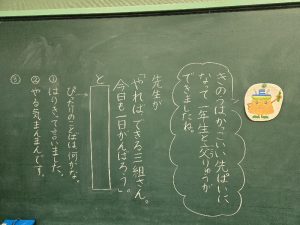 きのうはかっこいい先ぱいに、
なって一年生と交りゅうが
できましたね。
先生が
「やればできる三組さん。
今日も一日がんばろう」。
と
ぴったりのことばは何かな。
①はりきって言いました。
②やる気まんまんです。
③